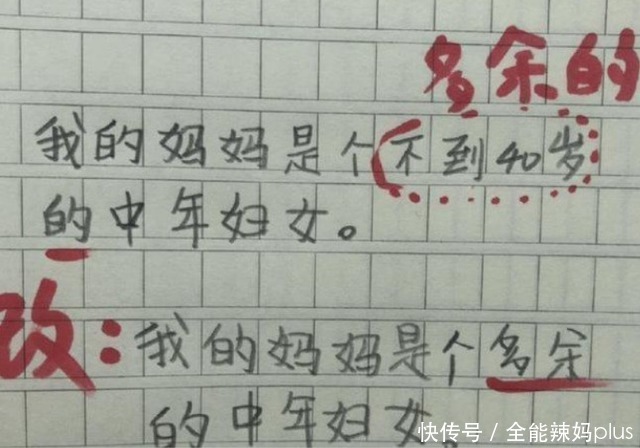 多余的
我的妈妈是个不到40岁
的中年妇女。
改：我的妈妈是个多余
的中年妇女。
快传号／全能辣妈plus